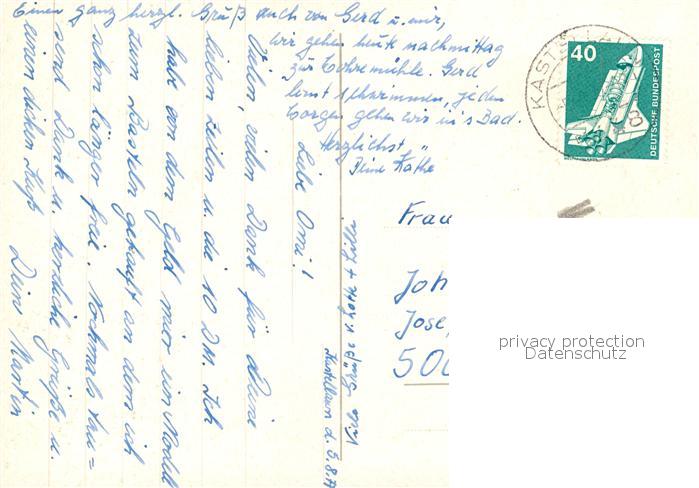 Einen ganz herzl. Gruß auch von Gerd u. mir,
wir gehen heute nachmittag
zur Lohremühle. Gerd
lernt schwimmen, jeden
Morgen gehen wir in's Bad.
Herzlichst
Deine Käthe
Kastellaun d. 5.8.77
Liebe Omi!
Vielen, vielen Dank für Deine
lieben Zeilen u. die 10 DM. Ich
habe von dem Geld mir ein Modell
zum Basteln gekauft an dem ich
schon länger
Nochmals tau=
send Dank u. herzliche Grüße u.
einen dicken Kuß Dein Martin
Viele Grüße v.
40
DEUTSCHE BUNDESPOST
KASTELLAUN
Frau
Joh
Jose
500
privacy protection
Datenschutz